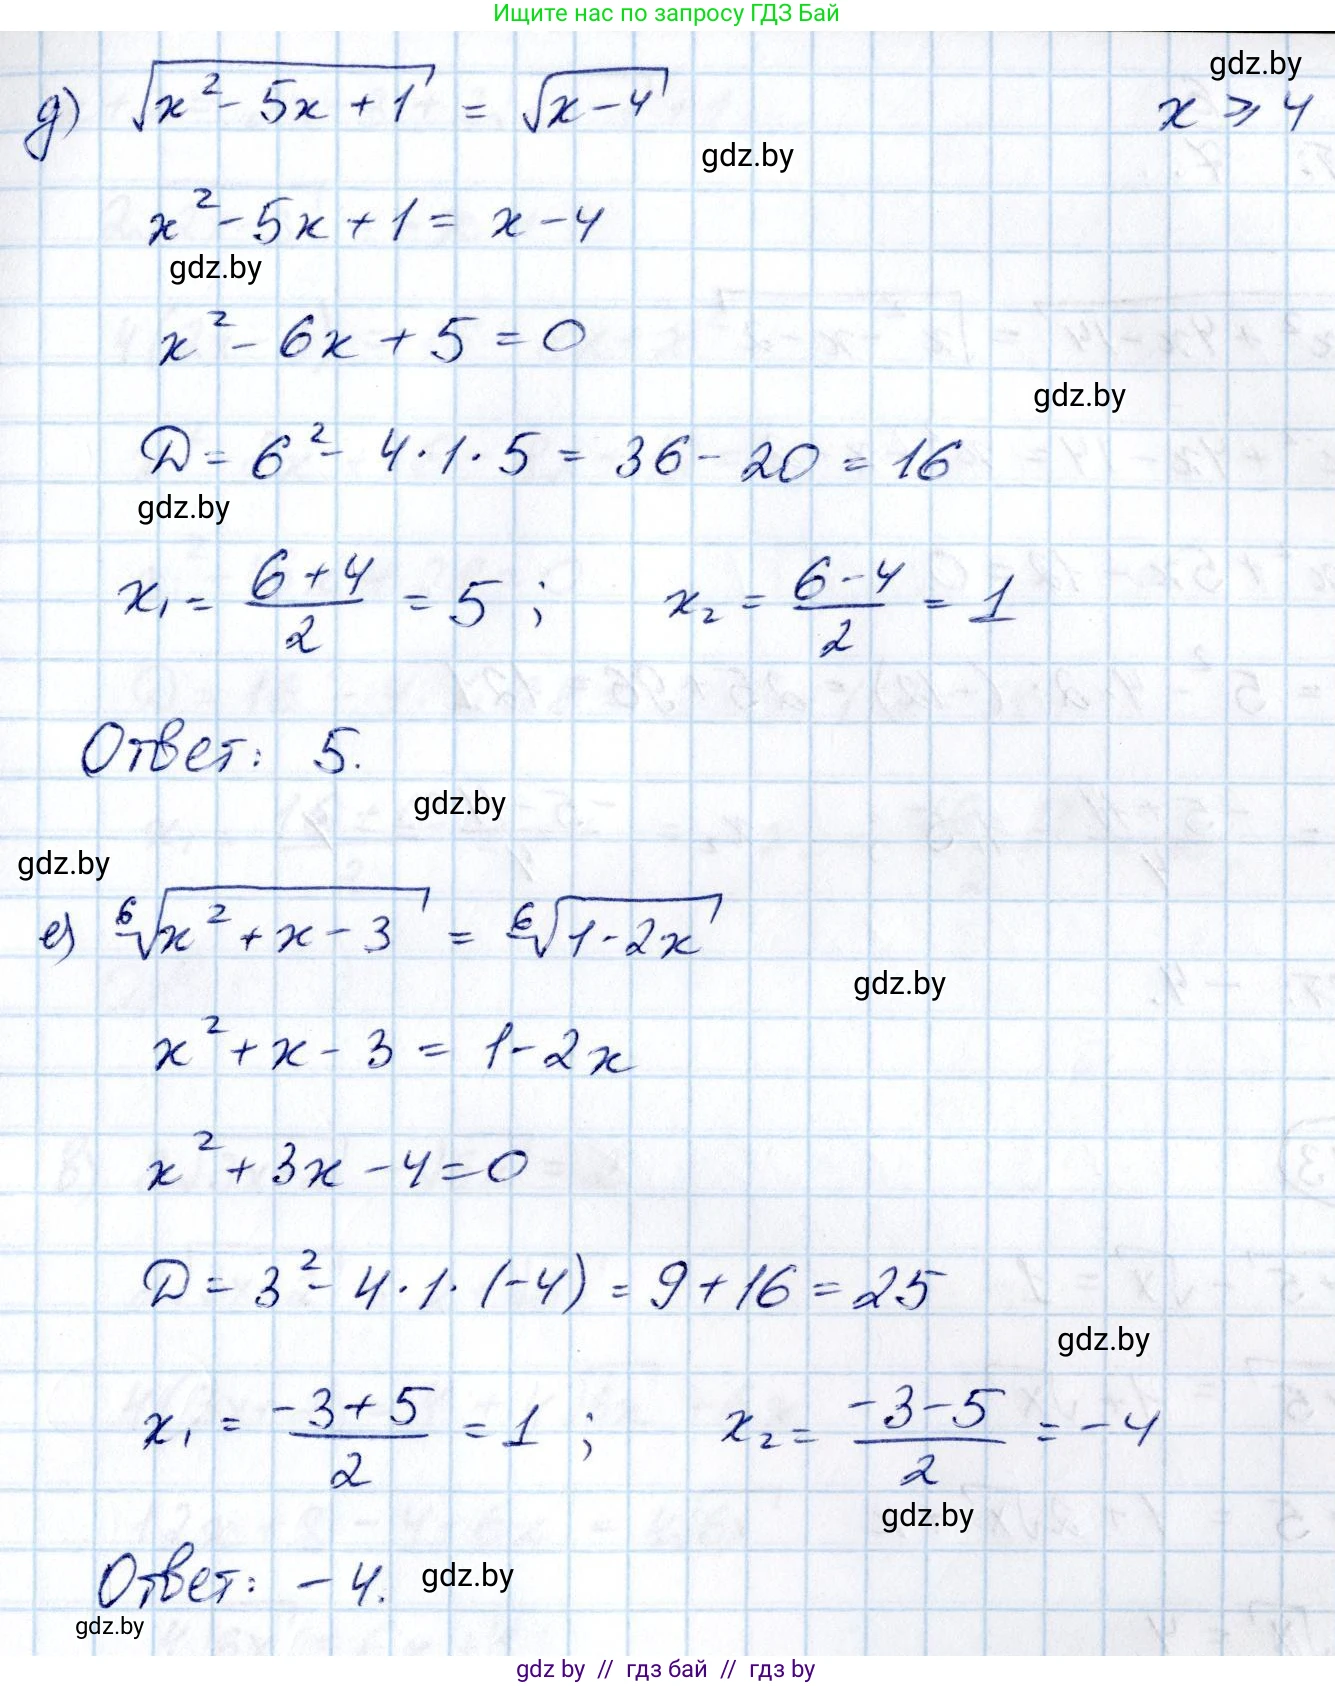 Ищите нас по запросу ГДЗ Бай
gdz.by
д) √(x² - 5x + 1) = √(x - 4) x ⩾ 4
gdz.by
x² - 5x + 1 = x - 4
gdz.by
x² - 6x + 5 = 0
gdz.by
D = 6² - 4 · 1 · 5 = 36 - 20 = 16
gdz.by
x₁ = (6 + 4)/2 = 5 ; x₂ = (6 - 4)/2 = 1
Ответ: 5.
gdz.by
gdz.by
е) ⁶√(x² + x - 3) = ⁶√(1 - 2x)
gdz.by
x² + x - 3 = 1 - 2x
x² + 3x - 4 = 0
D = 3² - 4 · 1 · (-4) = 9 + 16 = 25
gdz.by
x₁ = (-3 + 5)/2 = 1 ; x₂ = (-3 - 5)/2 = -4
gdz.by
Ответ: -4.
gdz.by
gdz.by
gdz by // гдз бай // гдз by